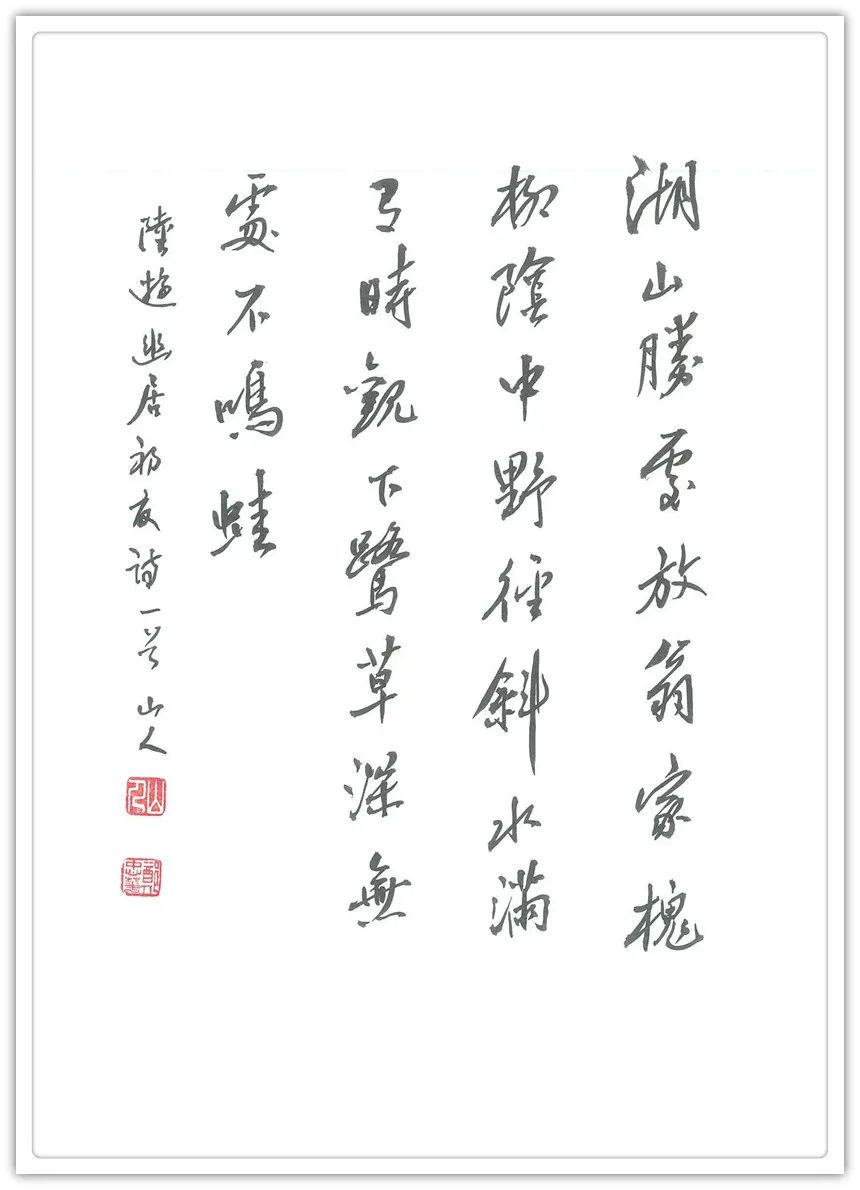 湖山勝處放翁家槐
柳陰中野徑斜水滿
有時觀下鷺草深無
處不鳴蛙
陸遊幽居初夏詩一首 山人
山人